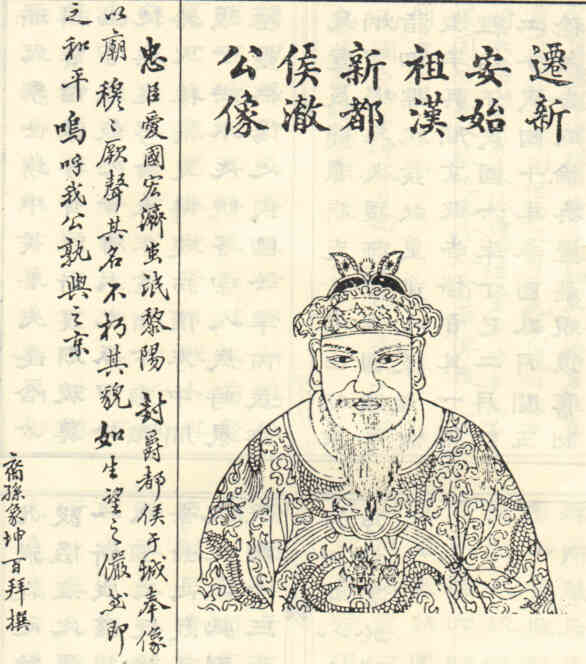 遷新
安始
祖漢
新都
侯澈
公像
忠臣愛國宏濟蚩氓黎陽封爵都侯于奉像
以廟穆厥聲其名不朽其貌如生望之儼然即
之和平嗚呼我公孰與之京
裔孫象坤百拜撰